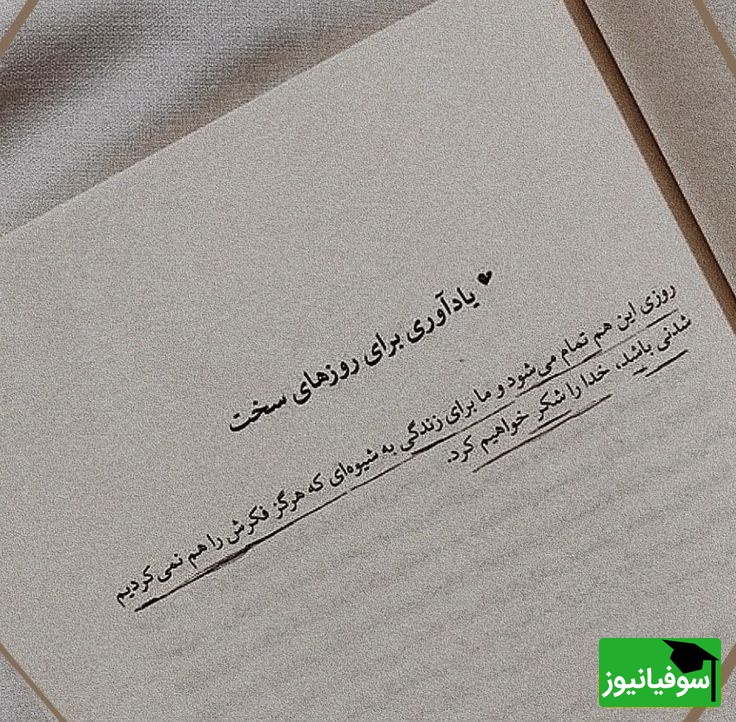 یادآوری برای روزهای سخت
روزی این هم تمام می‌شود و ما برای زندگی به شیوه‌ای که هرگز فکرش را هم نمی‌کردیم
شدنی باشد، خدا را شکر خواهیم کرد.
سوفیانیوز